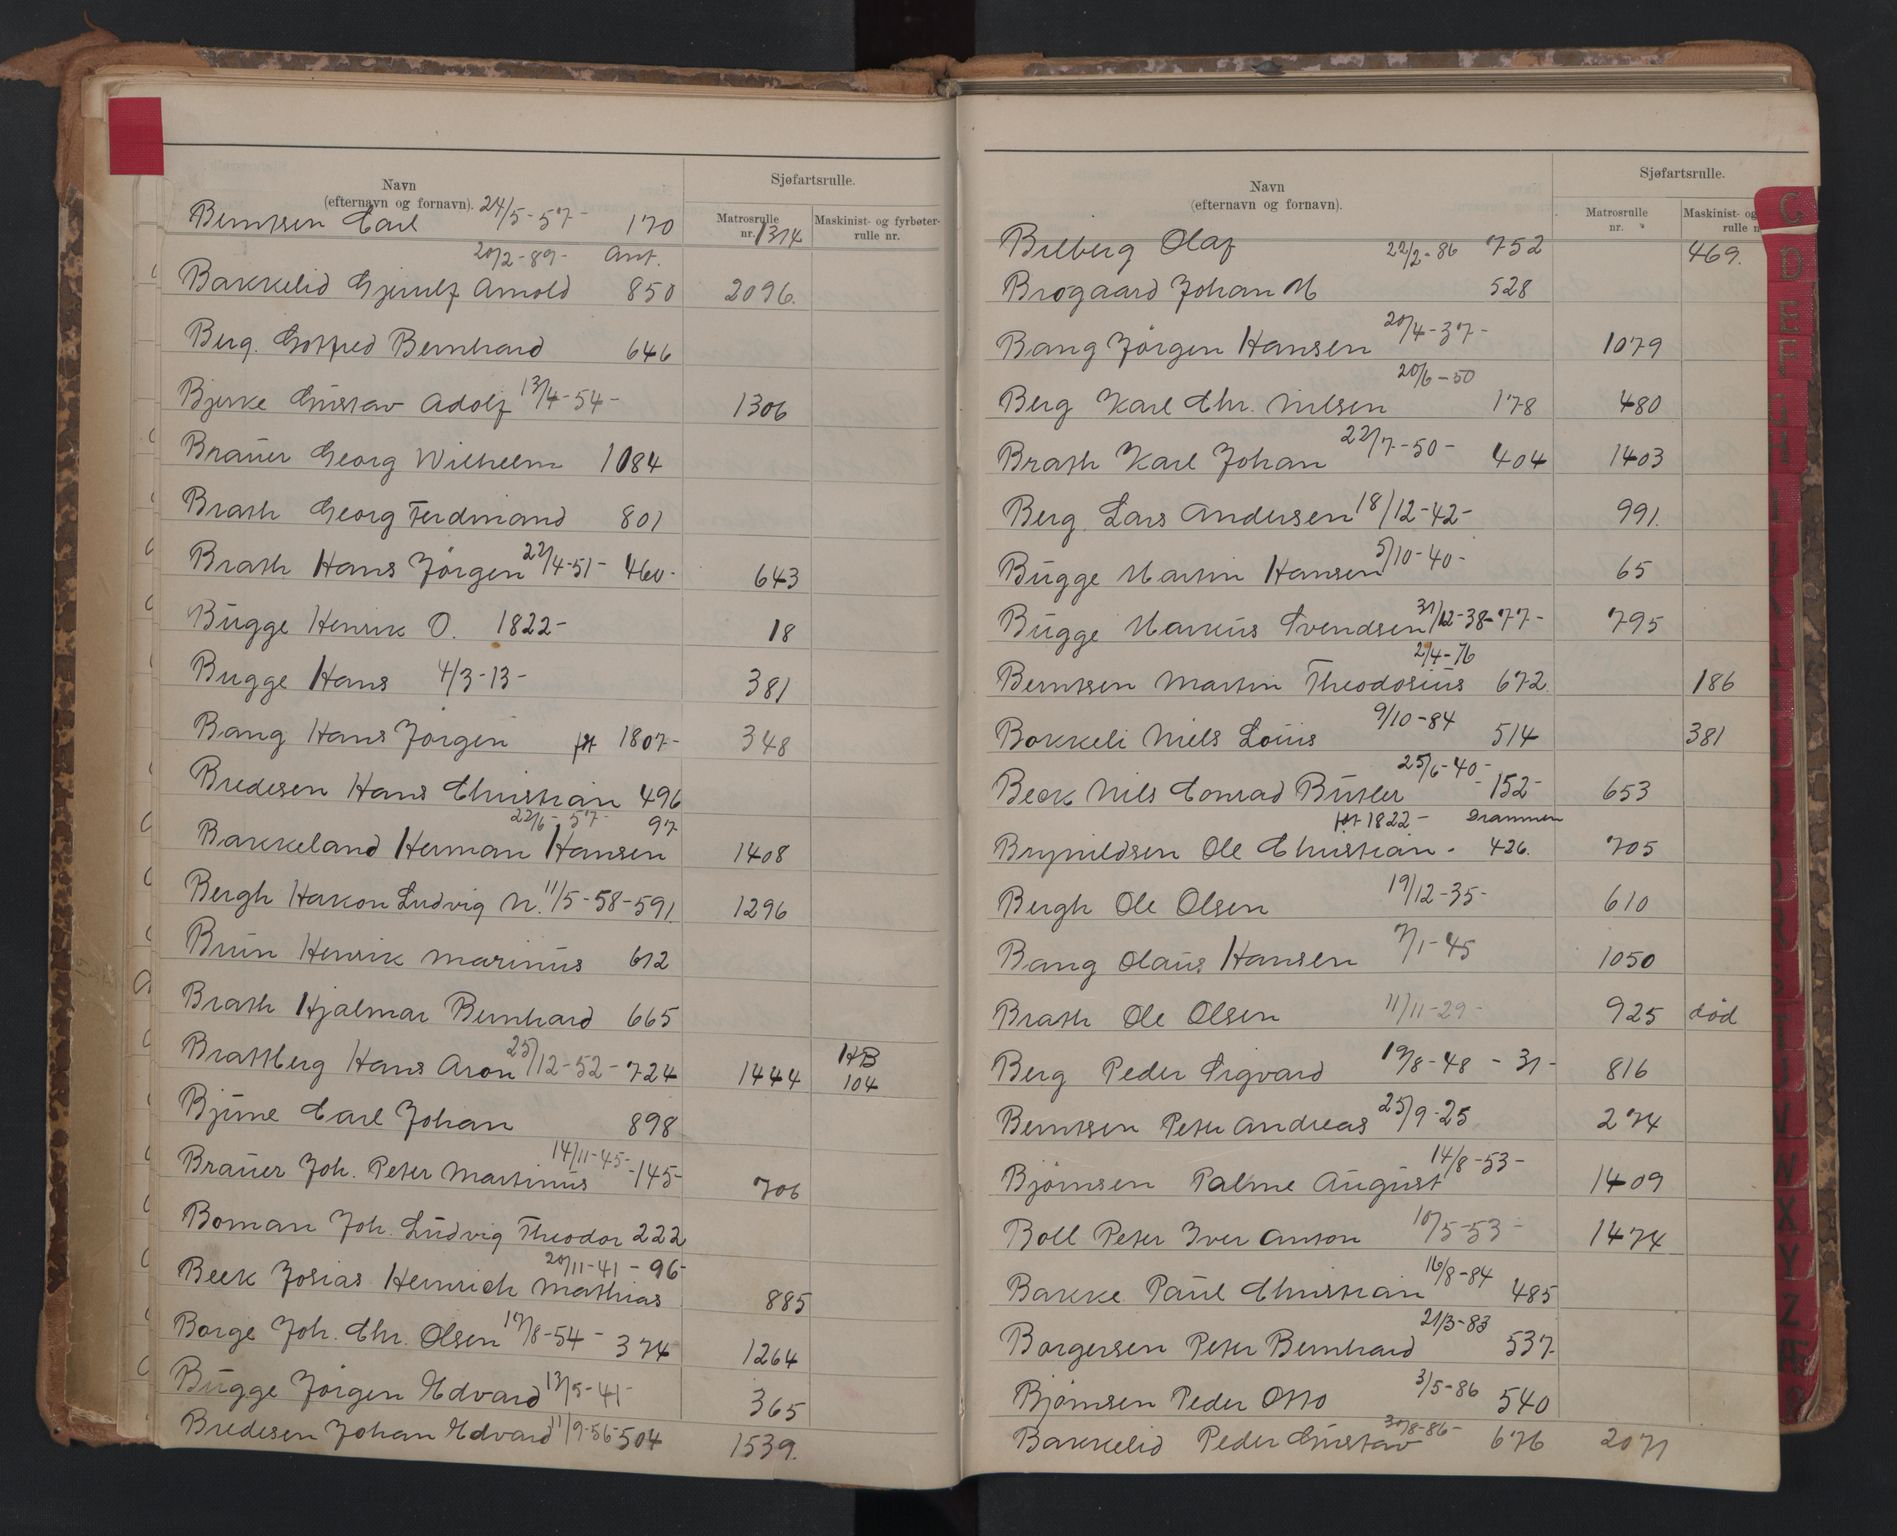 Navn
(efternavn og fornavn).
Sjøfartsrulle.
Matrosrulle nr.
Maskinist- og fyrbøter-rulle nr.
Berntsen Carl 24/5-57- 170 1314
20/2-89- Ant.
Bakkelid Gjerulf Arnold 850 2096.
Berg. Gotfred Bernhard 646
Bjerke Gustav Adolf 13/4-54- 1306
Brauer Georg Wilhelm 1084
Brath Georg Ferdinand 801
Brath Hans Jørgen 22/4-51- 460- 643
Bugge Henrik O. 1822- 18
Bugge Hans 4/3-13- 381
Bang Hans Jørgen 1807- 348
Bredesen Hans Christian 496
22/6-57- 97
Bakkeland Herman Hansen 1408
Bergh Hakon Ludvig N. 11/5-58-591. 1296
Brun Henrik Marinus 612
Brath Hjalmar Bernhard 665
Brattberg Hans Aron 25/12-52- 724 1444 HB 104
Bjune Carl Johan 898
14/11-45-
Brauer Joh. Peter Martinus -145- 706
Boman Joh. Ludvig Theodor 222
20/11-41-96-
Beck Josias Heinrich Mathias 885
Borge Joh. Chr. Olsen 17/8-54- 374 1264
Bugge Jørgen Edvard 13/5-41- 365
Bredesen Johan Edvard 11/9-56- 504 1539.
Navn
(efternavn og fornavn).
Sjøfartsrulle.
Matrosrulle nr.
Maskinist- og
rulle n
Bilberg Olaf 22/2-86 752 469.
Brogaard Johan M 528
Bang Jørgen Hansen 20/4-37- 1079
20/6-50
Berg Karl Chr. Nilsen 178 480
Brath Karl Johan 22/7-50- 404 1403
Berg Lars Andersen 18/12-42- 991.
Bugge Martin Hansen 5/10-40- 65
Bugge Markus Svendsen 31/12-38-77- 795
2/4-76
Berntsen Martin Theodosius 672. 186
Bokkeli Niels Louis 9/10-84 514 381
25/6-40-
Beck Nils Conrad Butler -152- 653
1822- Drammen
Brynildsen Ole Christian. 426. 705
Bergh Ole Olsen 19/12-35- 610
Bang Olaus Hansen 7/1-45 1050
Brath Ole Olsen 11/11-29- 925 død
Berg Peder Sigvard 19/8-48 - 31- 816
Berntsen Peter Andreas 25/9-25 274
Bjørnsen Palme August 14/8-53- 1409
Boll Peter Iver Anton 10/5-53- 1474
Bakke Paul Christian 16/8-84 485
Borgersen Peter Bernhard 21/3-83 537.
Bjørnsen Peder Otto 3/5-86 540
Bakkelid Peder Gustav 30/8-86- 676 2071
C
D
E
F
N
X
Y
Z
Æ